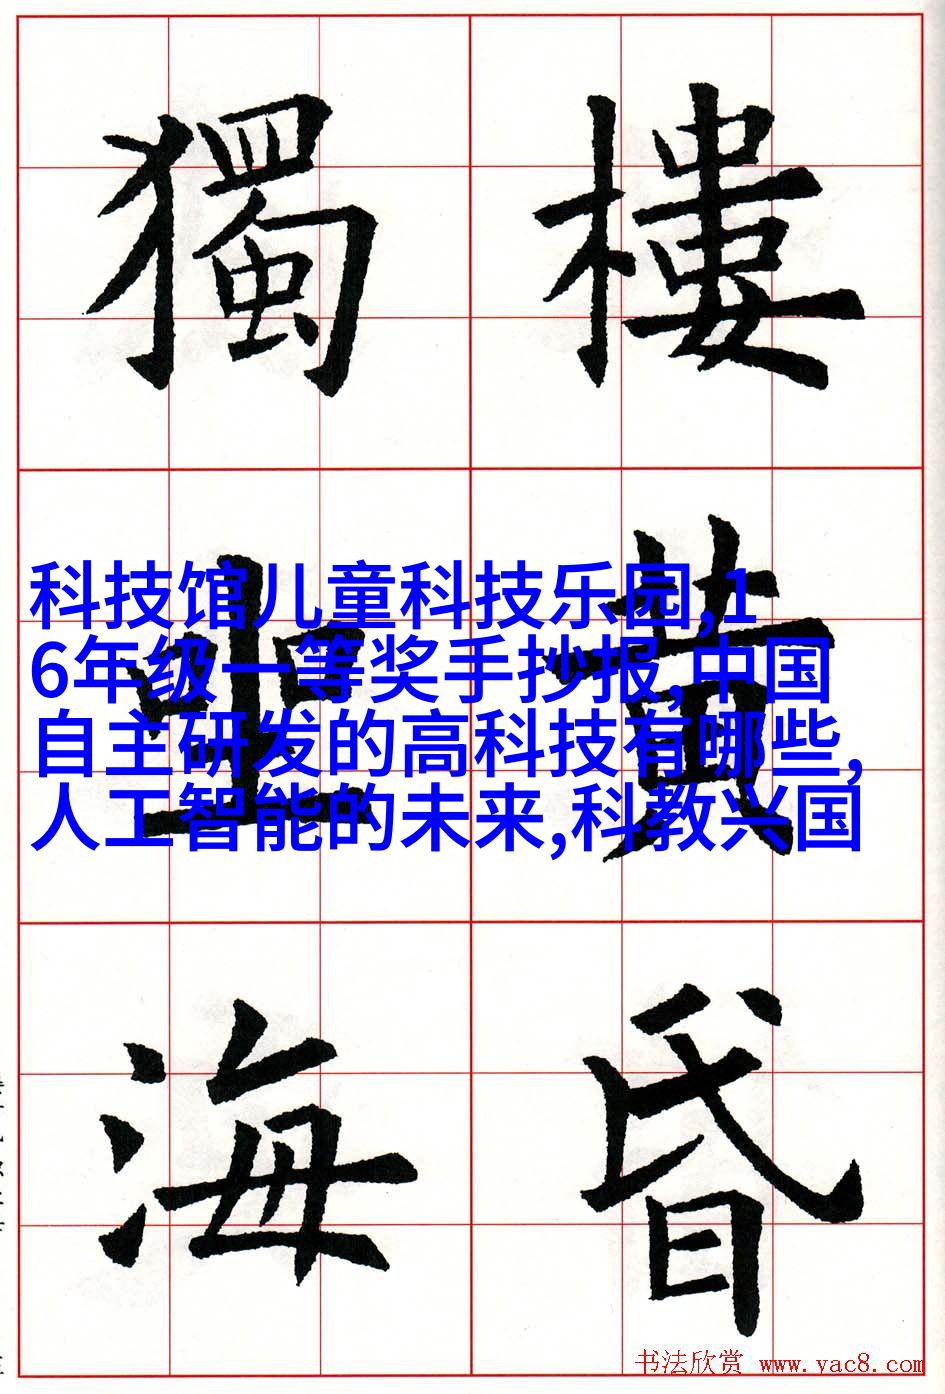 樓黄昏
獨坐海
科技馆儿童科技乐园,1
6年级一等奖手抄报,中国
自主研发的高科技有哪些,
人工智能的未来,科教兴国
书法欣赏 www.yac8.com